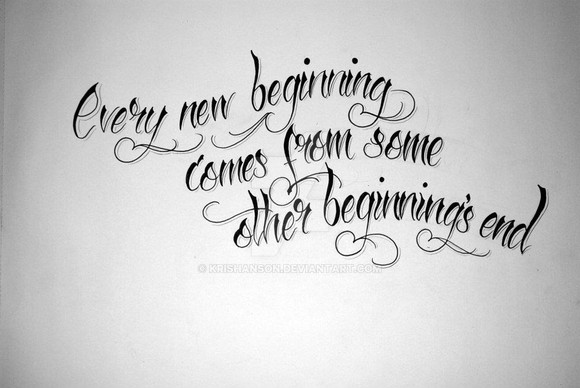 Every new beginning
comes from some
other beginning's end
© KRISHANSON.DEVIANTART.COM